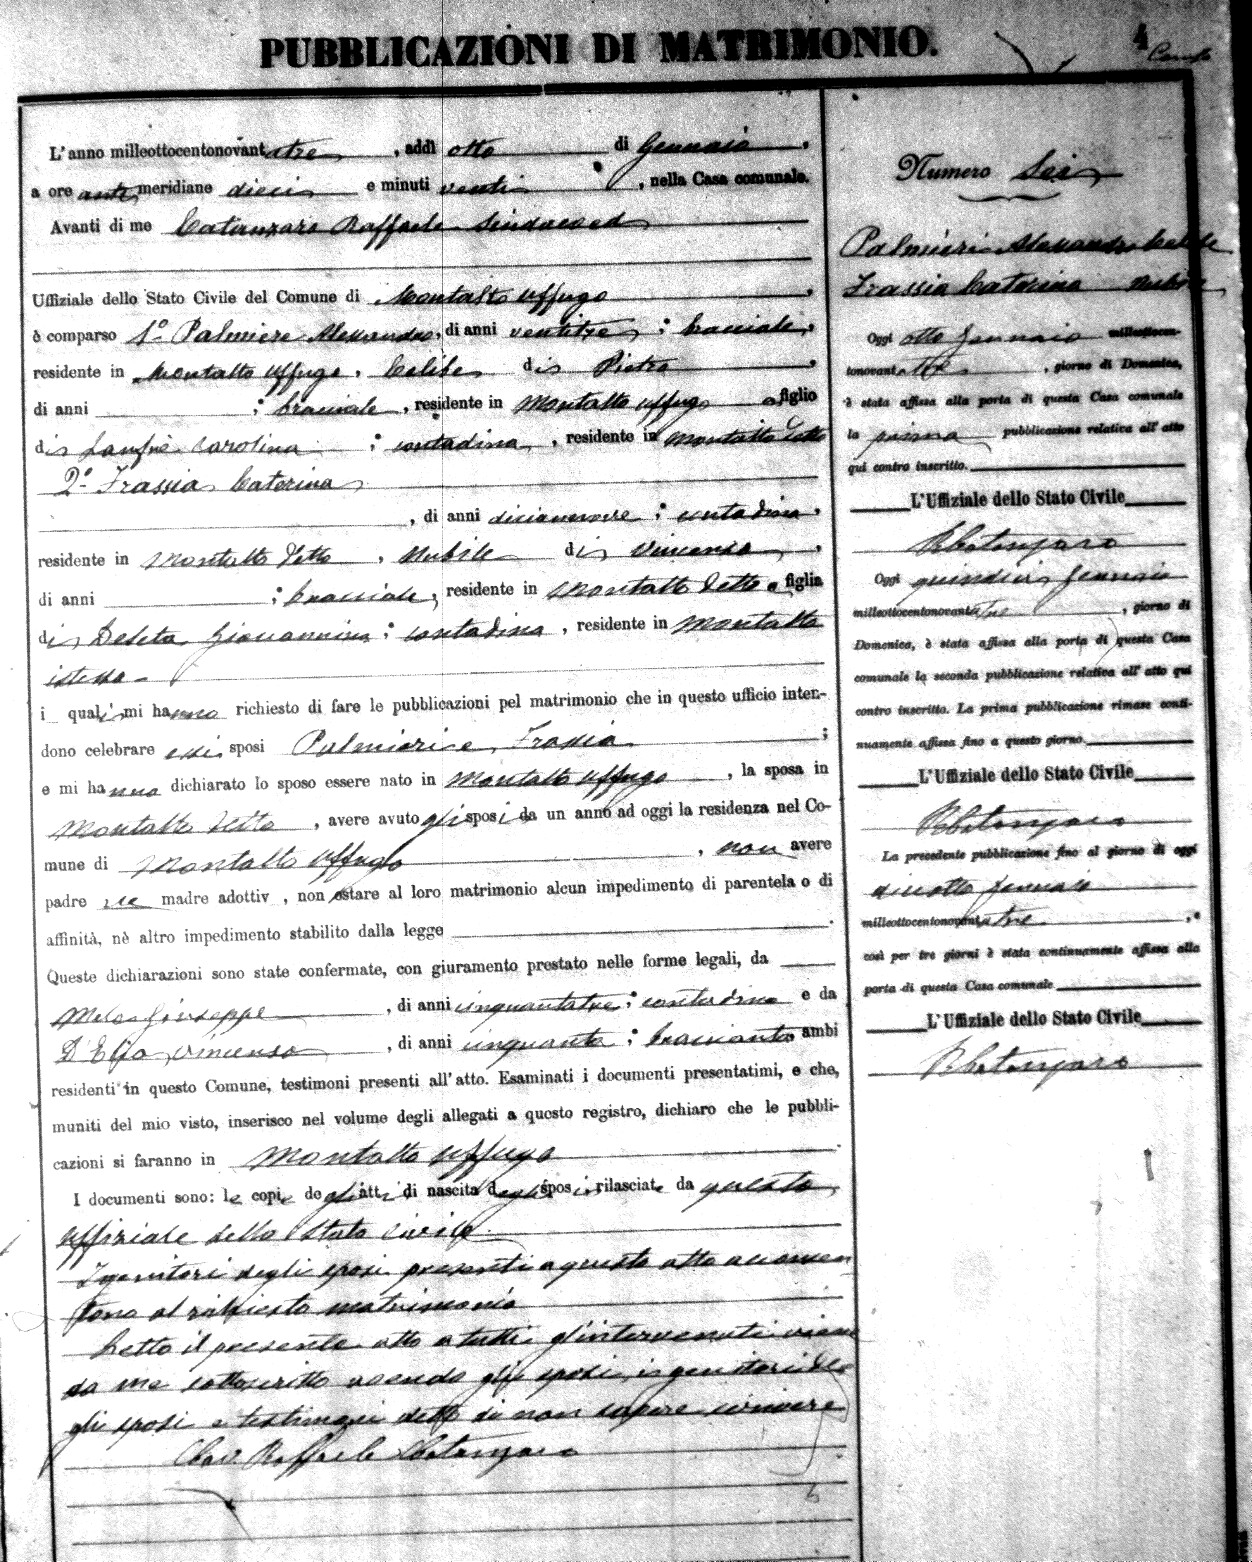 PUBBLICAZIONI DI MATRIMONIO.
4
L'anno milleottocentonovantatre, addì otto di Gennaio,
a ore antimeridiane dieci e minuti venti, nella Casa comunale.
Avanti di me Catanzaro Raffaele Sindaco ed
Uffiziale dello Stato Civile del Comune di Montalto Uffugo,
è comparso 1º Palmiere Alessandro, di anni ventitre; bracciale,
residente in Montalto Uffugo, Celibe di Pietro,
di anni ; bracciale, residente in Montalto Uffugo figlio
di Carolina ; contadina, residente in Montalto detto
2º Frassia Caterina
, di anni diciannove; contadina,
residente in Montalto detto, nubile di Vincenzo,
di anni ; bracciale, residente in Montalto detto figlia
di Deseta Giovannina; contadina, residente in Montalto
istesso
i quali mi hanno richiesto di fare le pubblicazioni pel matrimonio che in questo ufficio inten-
dono celebrare essi sposi Palmieri e Frassia ;
e mi hanno dichiarato lo sposo essere nato in Montalto Uffugo, la sposa in
Montalto detto, avere avuto gli sposi da un anno ad oggi la residenza nel Co-
mune di Montalto Uffugo, non avere
padre ne madre adottiv , non ostare al loro matrimonio alcun impedimento di parentela o di
affinità, nè altro impedimento stabilito dalla legge .
Queste dichiarazioni sono state confermate, con giuramento prestato nelle forme legali, da
Giuseppe, di anni cinquantatre; contadino e da
D'Elia Vincenzo, di anni cinquanta; bracciante, ambi
residenti in questo Comune, testimoni presenti all'atto. Esaminati i documenti presentatimi, e che,
muniti del mio visto, inserisco nel volume degli allegati a questo registro, dichiaro che le pubbli-
cazioni si faranno in Montalto Uffugo.
I documenti sono: le copie degli atti di nascita degli sposi rilasciate da questo
Uffiziale dello Stato Civile.
I genitori degli sposi presenti a questo atto acconsen
tono al richiesto matrimonio
Letto il presente atto a tutti gl'intervenuti viene
da me sottoscritto avendo gli sposi, i genitori de
gli sposi e testimoni detto di non sapere scrivere
Cav. Raffaele Catanzaro
Numero Sei
Palmieri Alessandro Celibe
Frassia Caterina Nubile
Oggi otto Gennaio milleottocen-
tonovantatre, giorno di Domenica,
è stata affissa alla porta di questa Casa comunale
la prima pubblicazione relativa all'atto
qui contro inscritto.
L'Uffiziale dello Stato Civile
R Catanzaro
Oggi quindici Gennaio
milleottocentonovantatre, giorno di
Domenica, è stata affissa alla porta di questa Casa
comunale la seconda pubblicazione relativa all'atto qui
contro inscritto. La prima pubblicazione rimase conti-
nuamente affissa fino a questo giorno.
L'Uffiziale dello Stato Civile
R Catanzaro
La precedente pubblicazione fino al giorno di oggi
diciotto Gennaio
milleottocentonovantatre, e
così per tre giorni è stata continuamente affissa alla
porta di questa Casa comunale
L'Uffiziale dello Stato Civile
R Catanzaro